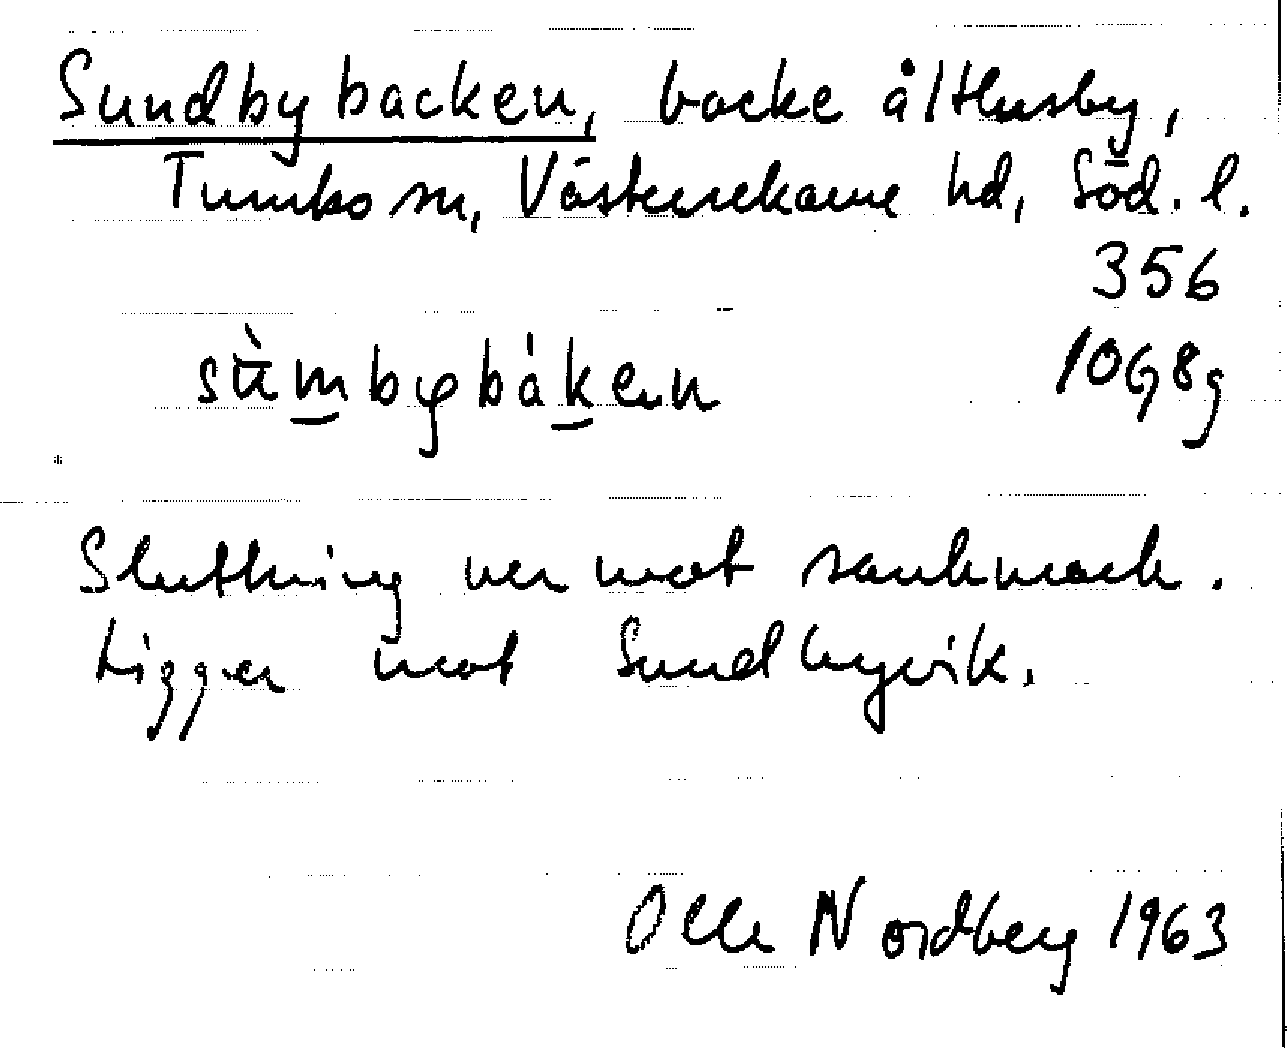 Sundbybacken, backe å Husby,
Tumbo sn, Västerrekarne hd, Söd. l.
356
sùmbybáken
10G8g
Sluttning ner mot sankmark.
Ligger mot Sundbyvik.
Olle Nordberg 1963